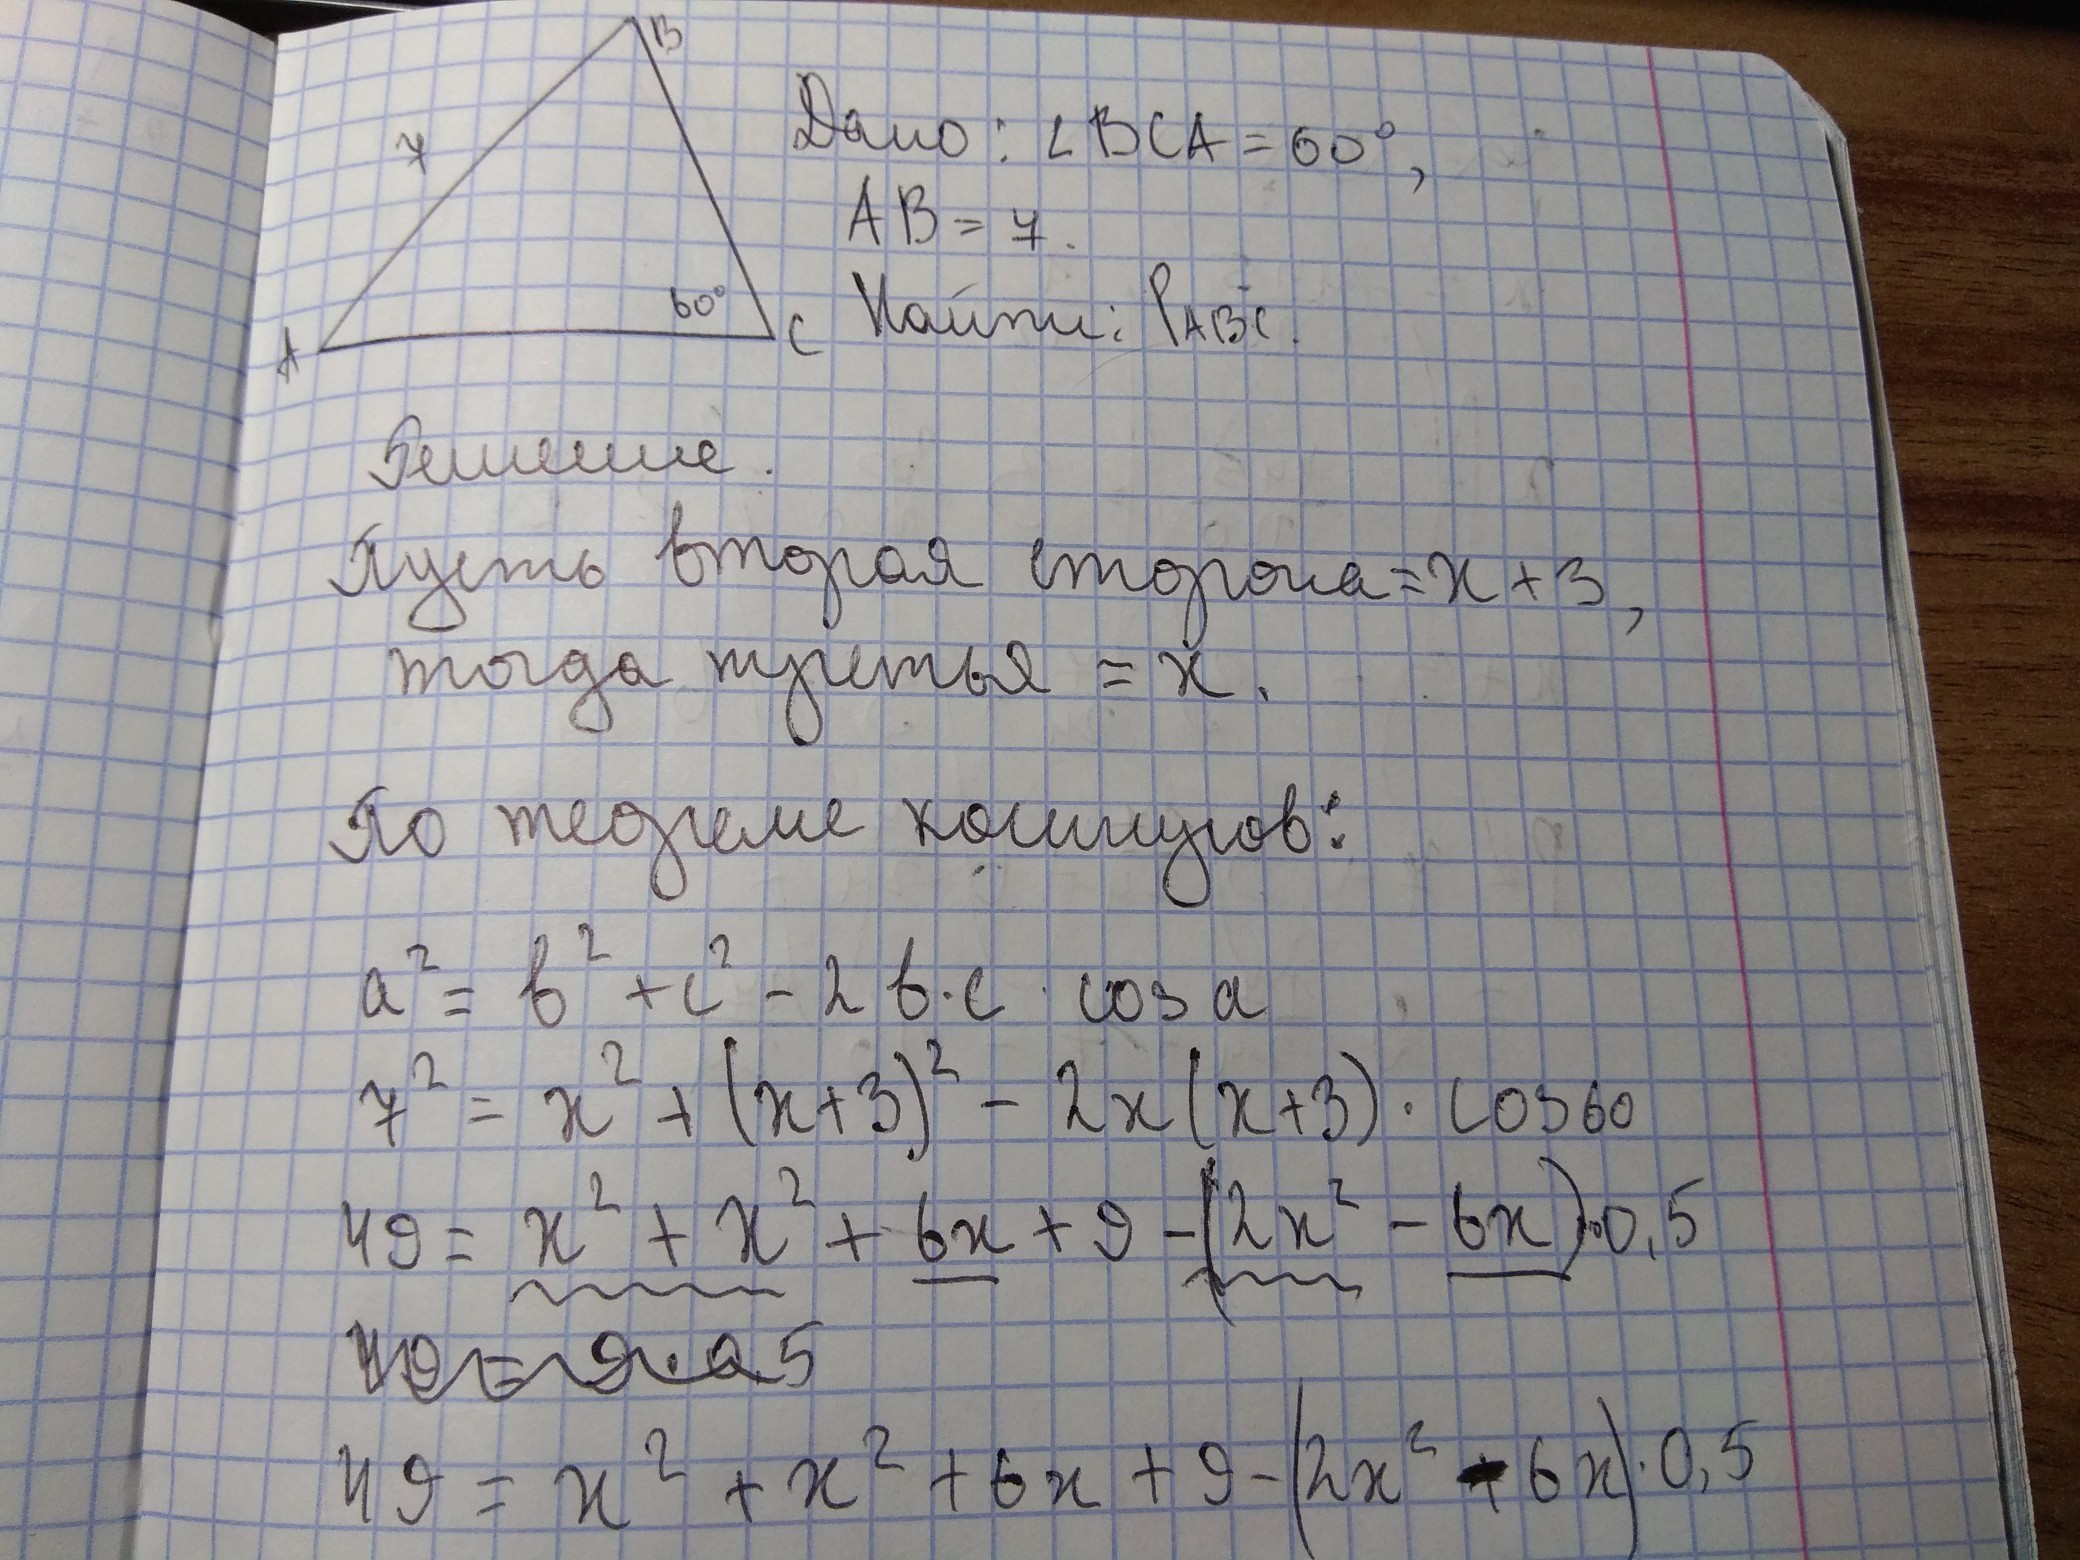 B
7
60°
A
C
Дано: ∠BCA = 60°,
AB = 7.
Найти: PABC.
Решение.
Пусть вторая сторона = x + 3,
тогда третья = x.
По теореме косинусов:
a² = b² + c² - 2b·c · cos a
7² = x² + (x+3)² - 2x(x+3) · cos60
49 = x² + x² + 6x + 9 - (2x² - 6x)·0,5
49 = 9·0,5
49 = x² + x² + 6x + 9 - (2x² + 6x)·0,5